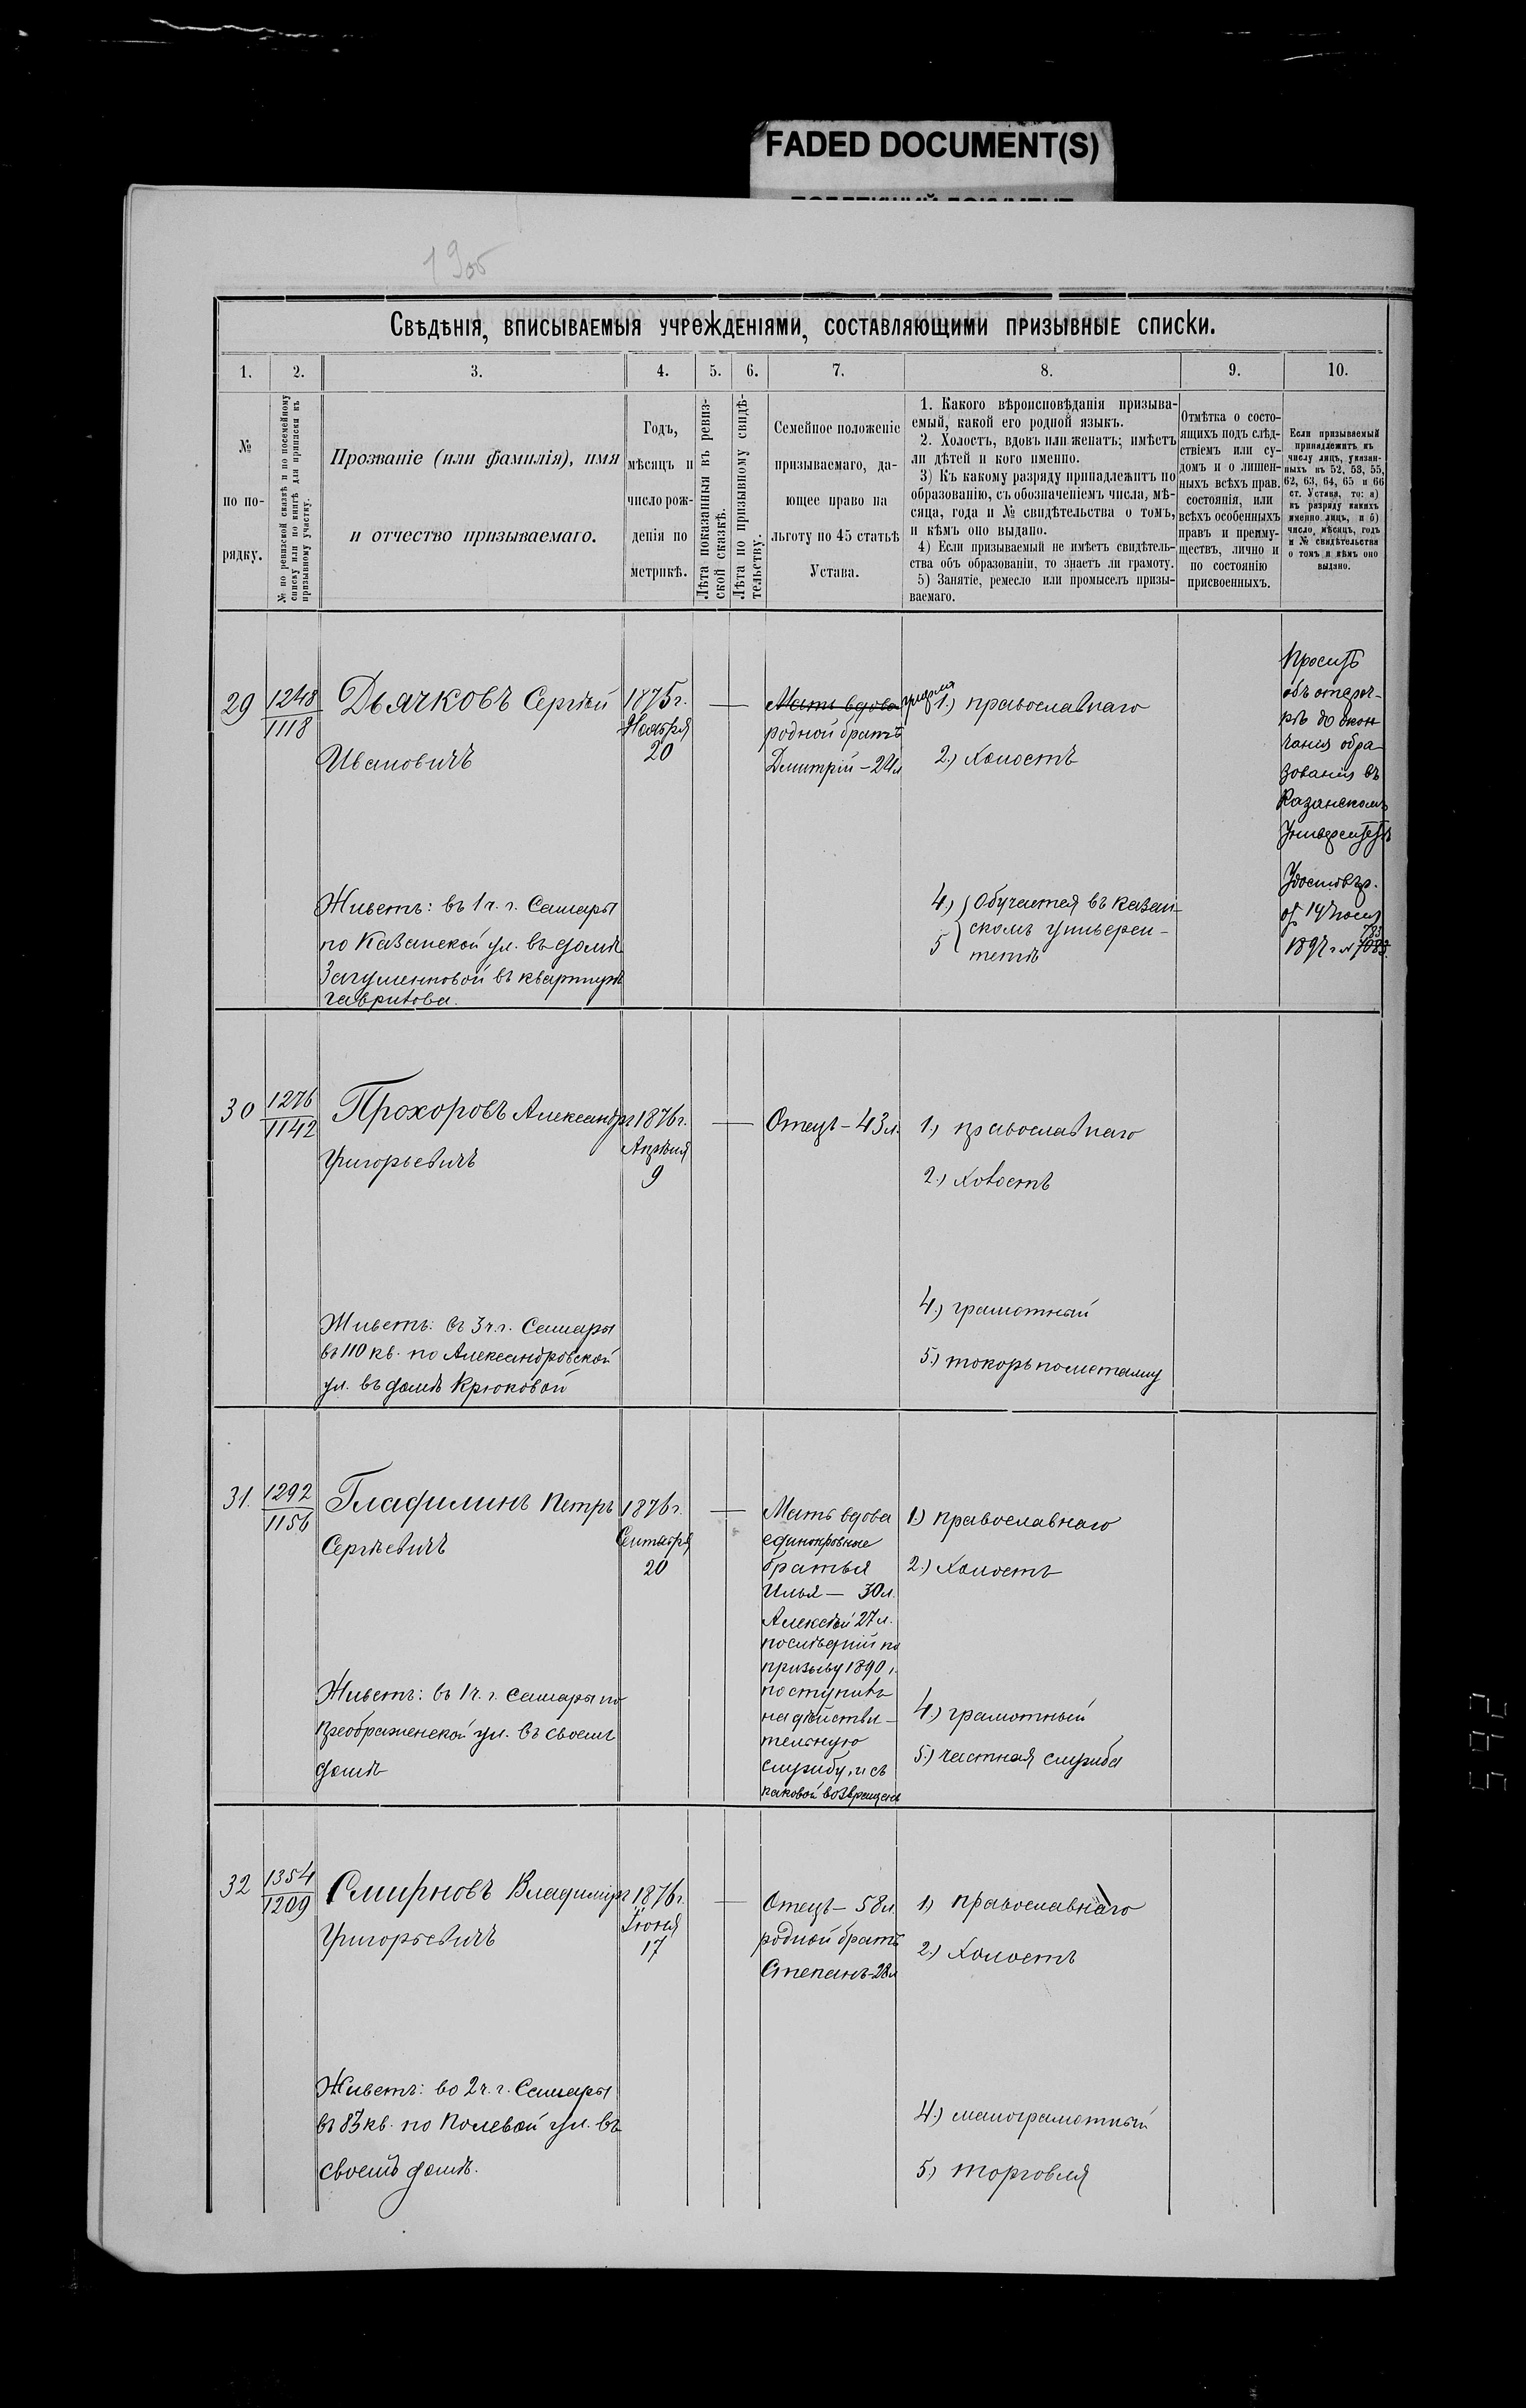 FADED DOCUMENT(S)
Свѣдѣнія, вписываемыя учрежденіями, составляющими призывные списки.
1. 2. 3. 4. 5. 6. 7. 8. 9. 10.
№
по по-
рядку.
№ по ревизской сказкѣ и по посемейному
списку или по книгѣ для приписки къ
призывному участку.
Прозваніе (или фамилія), имя
и отчество призываемаго.
Годъ,
мѣсяцъ и
число рож-
денія по
метрикѣ.
Лѣта показанныя въ ревиз-
ской сказкѣ.
Лѣта по призывному свидѣ-
тельству.
Семейное положеніе
призываемаго, да-
ющее право на
льготу по 45 статьѣ
Устава.
1. Какого вѣроисповѣданія призыва-
емый, какой его родной языкъ.
2. Холостъ, вдовъ или женатъ; имѣетъ
ли дѣтей и кого именно.
3) Къ какому разряду принадлежитъ по
образованію, съ обозначеніемъ числа, мѣ-
сяца, года и № свидѣтельства о томъ,
и кѣмъ оно выдано.
4) Если призываемый не имѣетъ свидѣтель-
ства объ образованіи, то знаетъ ли грамоту.
5) Занятіе, ремесло или промыселъ призы-
ваемаго.
Отмѣтка о состо-
ящихъ подъ слѣд-
ствіемъ или су-
домъ и о лишен-
ныхъ всѣхъ прав.
состоянія, или
всѣхъ особенныхъ
правъ и преиму-
ществъ, лично и
по состоянію
присвоенныхъ.
Если призываемый
принадлежитъ къ
числу лицъ, указан-
ныхъ въ 52, 53, 55,
62, 63, 64, 65 и 66
ст. Устава, то: а)
къ разряду какихъ
именно лицъ, и б)
число, мѣсяцъ, годъ
и № свидѣтельства
о томъ и кѣмъ оно
выдано.
29
1248
1118
Дьячковъ Сергѣй
Ивановичъ
Живетъ: въ 1 ч. г. Самары
по Казанской ул. въ домѣ
Загуменновой въ квартирѣ
Гаврилова.
1875 г.
Ноября
20
Мать вдова
родной братъ
Дмитрій – 24 л
1.) православнаго
2.) Холостъ
4.) Обучается въ Казан-
5 скомъ универси-
тетѣ
Проситъ
объ отсроч-
кѣ до окон
чанія обра-
зованія въ
Казанскомъ
Университетѣ
Удостовѣр.
от 14 Июля
1897 г. №
30
1276
1142
Прохоровъ Александръ
Григорьевичъ
Живетъ: въ 3 ч. г. Самары
въ 110 кв. по Александровской
ул. въ домѣ Крюковой
1876 г.
Апрѣля
9
Отецъ – 43 л.
1.) православнаго
2.) Холостъ
4.) грамотный
5.) токорь по металлу
31.
1292
1156
Гладилинъ Петръ
Сергѣевичъ
Живетъ: въ 1 ч. г. Самары по
Преображенской ул. въ своемъ
домѣ
1876 г.
Сентября
20
Мать вдова
единокровные
братья
Илья — 30 л.
Алексѣй 27 л.
послѣдній по
призыву 1890 г.
поступилъ
на дѣйстви-
тельную
службу, и съ
каковой возвращенъ
1.) православнаго
2.) Холостъ
4.) грамотный
5.) частная служба
32
1354
1209
Смирновъ Владиміръ
Григорьевичъ
Живетъ: во 2 ч. г. Самары
въ 83 кв. по Полевой ул. въ
своемъ домѣ.
1876 г.
Іюня
17
Отецъ – 58 л.
родной братъ
Степанъ – 28 л
1) православнаго
2.) Холостъ
4.) малограмотный
5) торговля
592